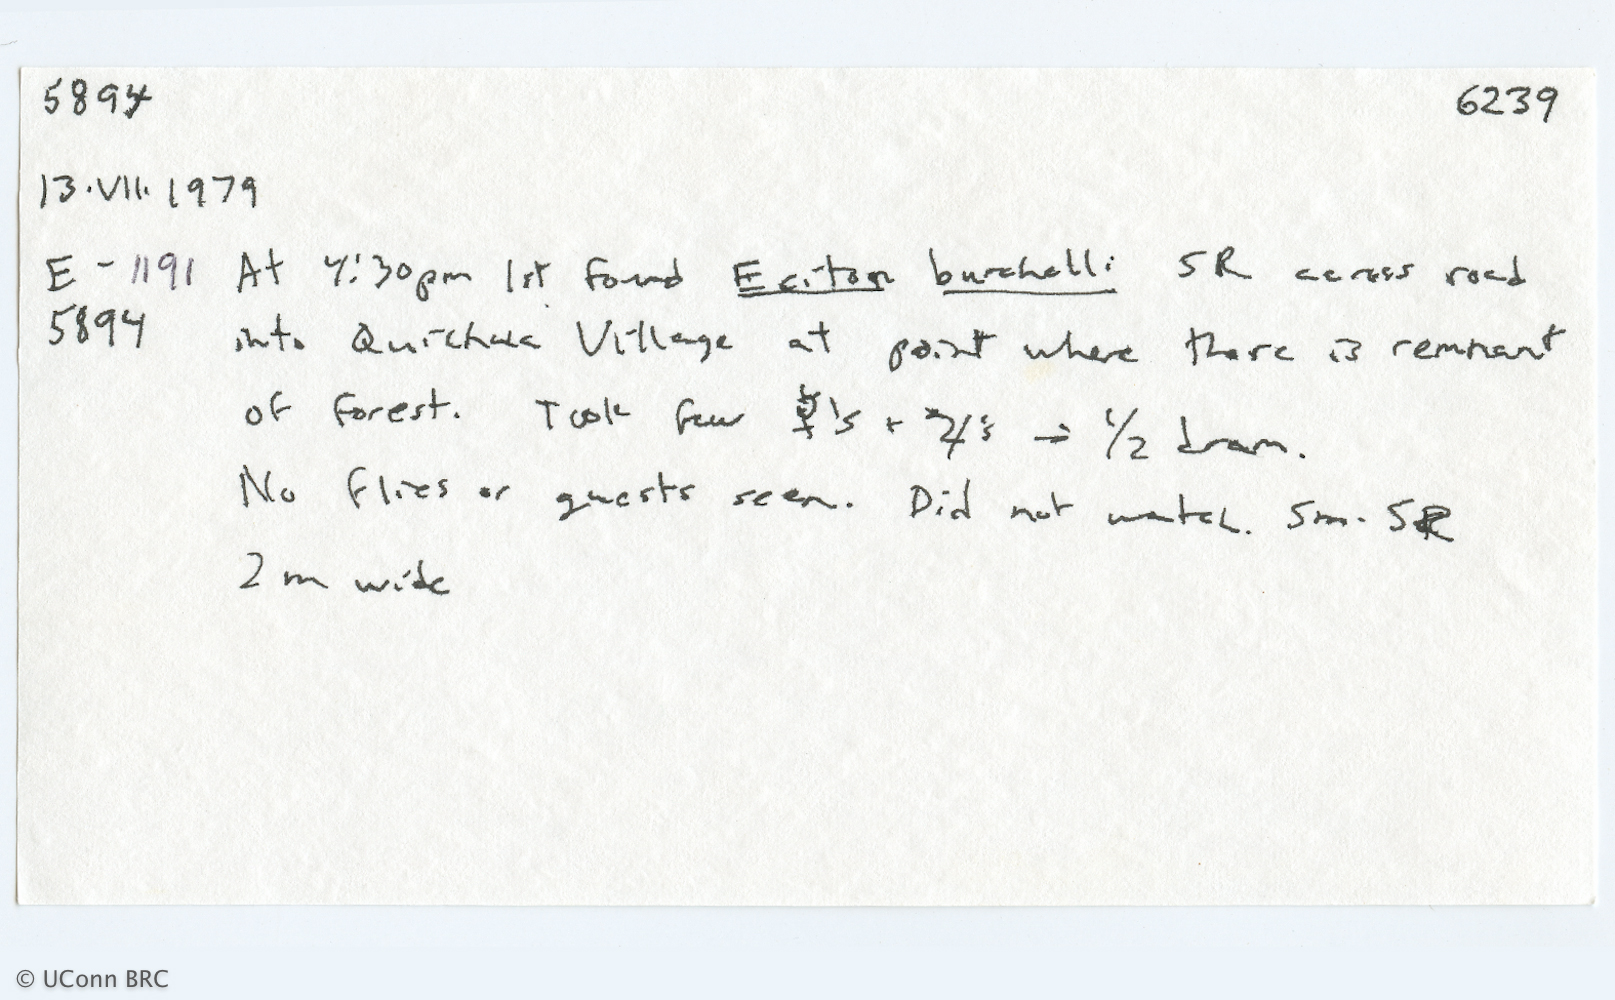 5894
6239
13.VII.1979
E-1191 At 4:30pm 1st found Eciton burchelli SR across road
5894 into Quichua Village at point where there is remnant
of forest. Took few ☿'s + ♃'s → 1/2 dram.
No flies or guests seen. Did not watch. Sm. SR
2 m wide
© UConn BRC